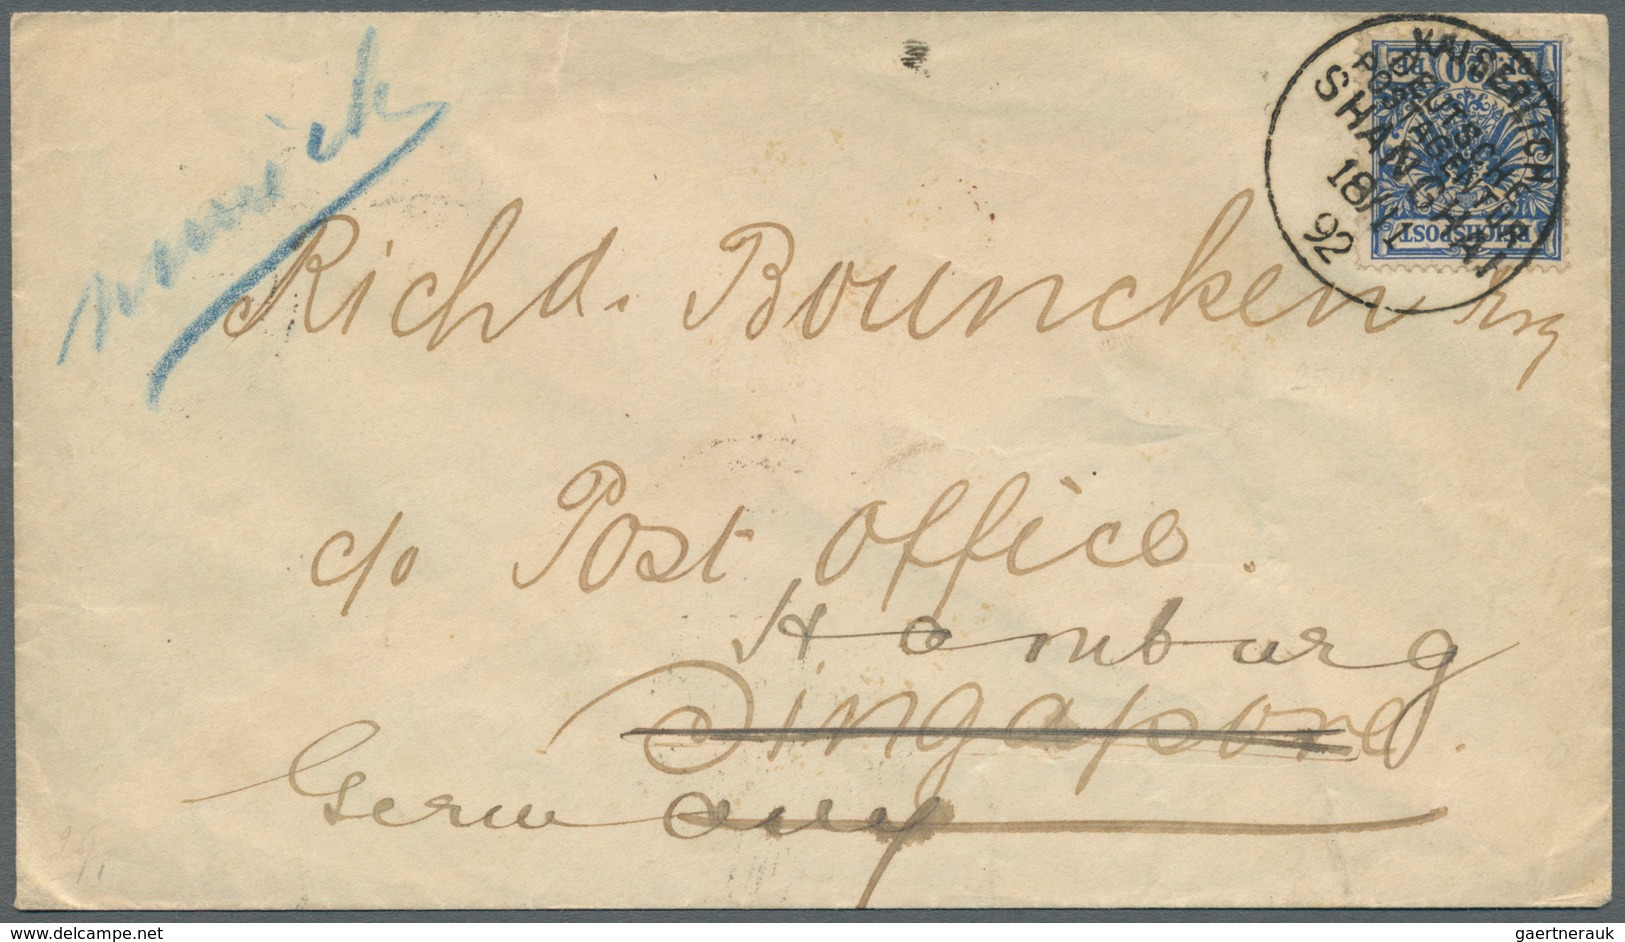 KAISERLICH
DEUTSCHE
POSTAGENTUR
SHANGHAI
18/11
92
20
REICHSPOST
Richd. Bouncken Esq
c/o Post Office.
Homburg
Singapore.
Germany
www.delcampe.net
gaertnerauk